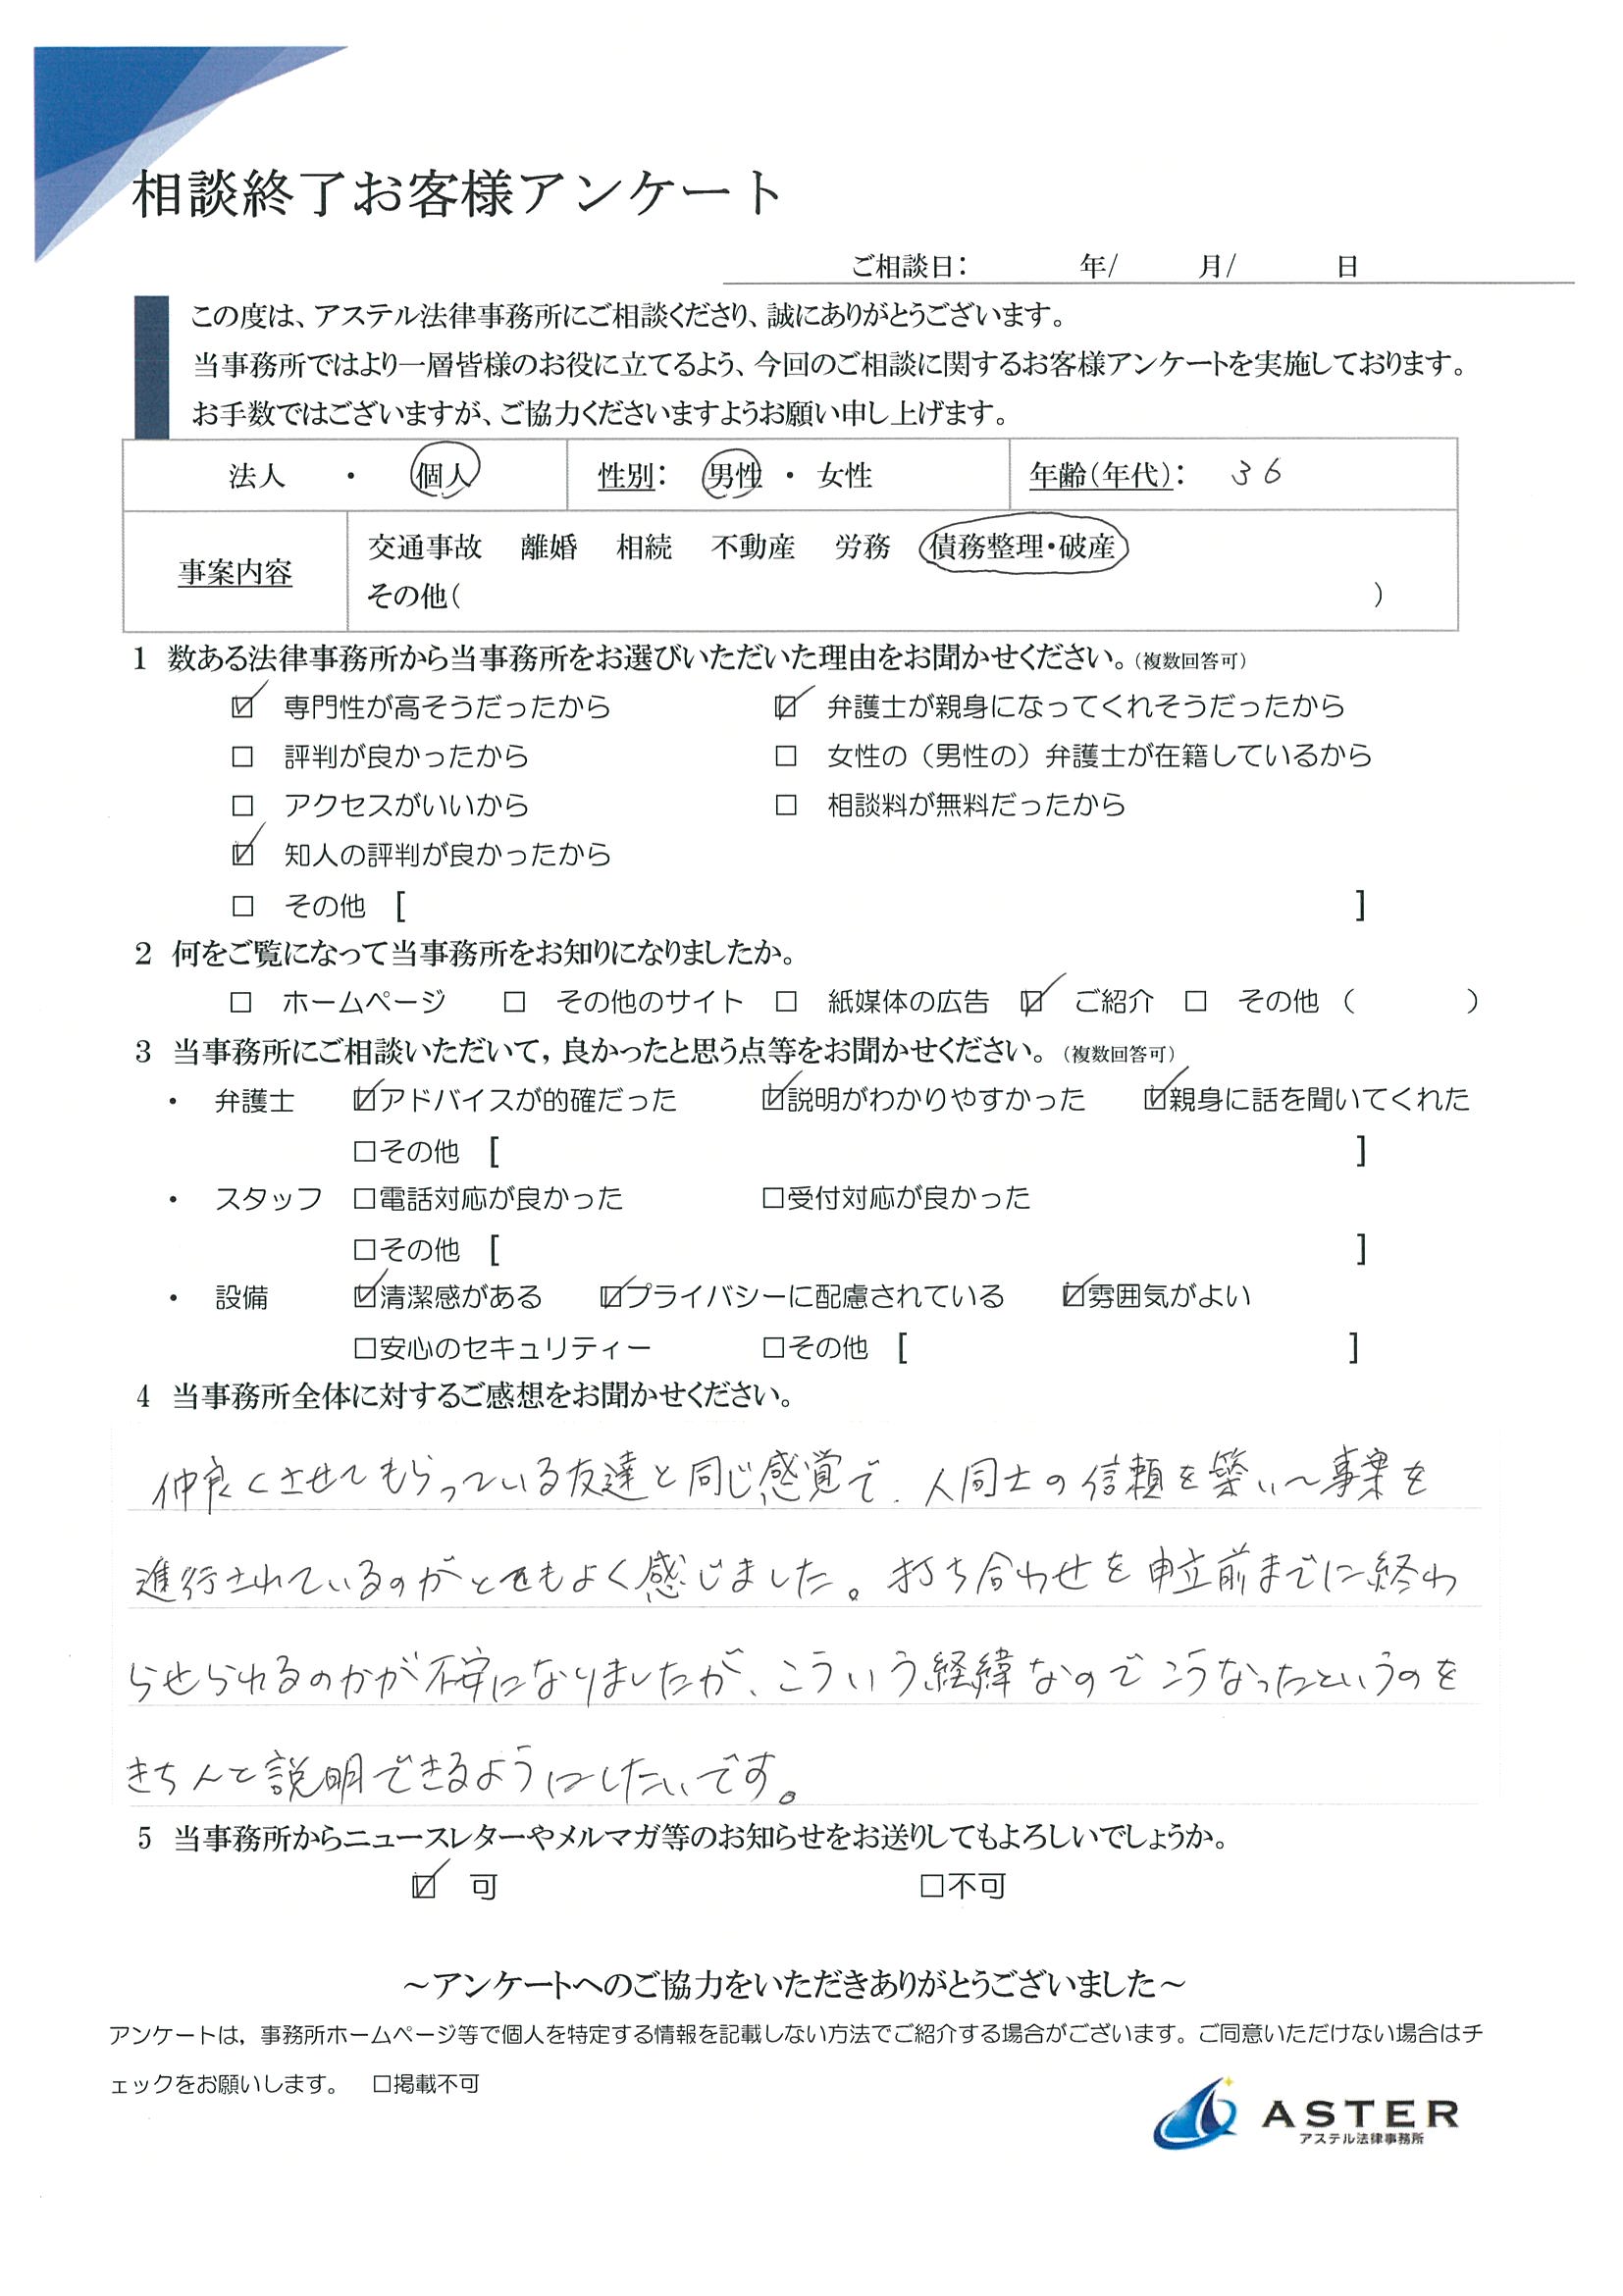 相談終了お客様アンケート
ご相談日： 年/ 月/ 日
この度は、アステル法律事務所にご相談くださり、誠にありがとうございます。
当事務所ではより一層皆様のお役に立てるよう、今回のご相談に関するお客様アンケートを実施しております。
お手数ではございますが、ご協力くださいますようお願い申し上げます。
法人 ・ 個人 性別： 男性 ・ 女性 年齢（年代）： 36
事案内容 交通事故 離婚 相続 不動産 労務 債務整理・破産
その他（ ）
1 数ある法律事務所から当事務所をお選びいただいた理由をお聞かせください。（複数回答可）
☑ 専門性が高そうだったから ☑ 弁護士が親身になってくれそうだったから
□ 評判が良かったから □ 女性の（男性の）弁護士が在籍しているから
□ アクセスがいいから □ 相談料が無料だったから
☑ 知人の評判が良かったから
□ その他 [ ]
2 何をご覧になって当事務所をお知りになりましたか。
□ ホームページ □ その他のサイト □ 紙媒体の広告 ☑ ご紹介 □ その他 （ ）
3 当事務所にご相談いただいて，良かったと思う点等をお聞かせください。（複数回答可）
・ 弁護士 ☑アドバイスが的確だった ☑説明がわかりやすかった ☑親身に話を聞いてくれた
□その他 [ ]
・ スタッフ □電話対応が良かった □受付対応が良かった
□その他 [ ]
・ 設備 ☑清潔感がある ☑プライバシーに配慮されている ☑雰囲気がよい
□安心のセキュリティー □その他 [ ]
4 当事務所全体に対するご感想をお聞かせください。
仲良くさせてもらっている友達と同じ感覚で、人同士の信頼を築いて事案を
進行されているのがとてもよく感じました。打ち合わせを申立前までに終わ
らせられるのかが不安になりましたが、こういう経緯なのでこうなったというのを
きちんと説明できるようにしたいです。
5 当事務所からニュースレターやメルマガ等のお知らせをお送りしてもよろしいでしょうか。
☑ 可 □不可
～アンケートへのご協力をいただきありがとうございました～
アンケートは，事務所ホームページ等で個人を特定する情報を記載しない方法でご紹介する場合がございます。ご同意いただけない場合はチ
ェックをお願いします。 □掲載不可
ASTER
アステル法律事務所